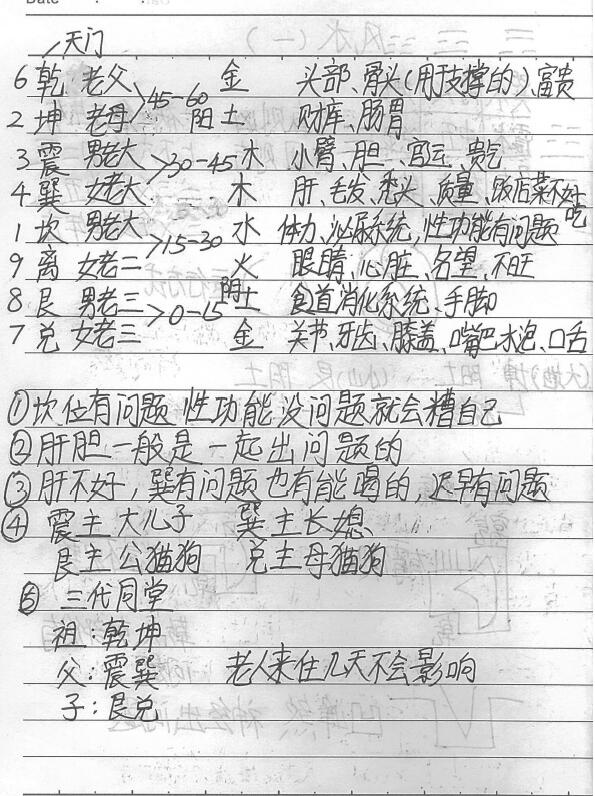 Date
天门
6 乾 老父 >45-60 金 头部、骨头(用于支撑的)、富贵
2 坤 老母 阳土 财库、肠胃
3 震 男老大 >30-45 木 小臂、胆、官运、贵气
4 巽 女老大 木 肝、毛发、秃头、质量、饭店菜不好吃
1 坎 男老大 >15-30 水 体力、泌尿系统,性功能有问题
9 离 女老二 火 眼睛、心脏、名望、不旺
8 艮 男老三 >0-15 阴土 食道消化系统、手脚
7 兑 女老三 金 关节、牙齿、膝盖、嘴巴水泡、口舌
①坎位有问题 性功能没问题就会糟自己
②肝胆一般是一起出问题的
③肝不好,巽有问题也有能喝的,迟早有问题
④ 震主大儿子 巽主长媳
艮主公猫狗 兑主母猫狗
⑤ 三代同堂
祖:乾坤
父:震巽 老人来住几天不会影响
子:艮兑